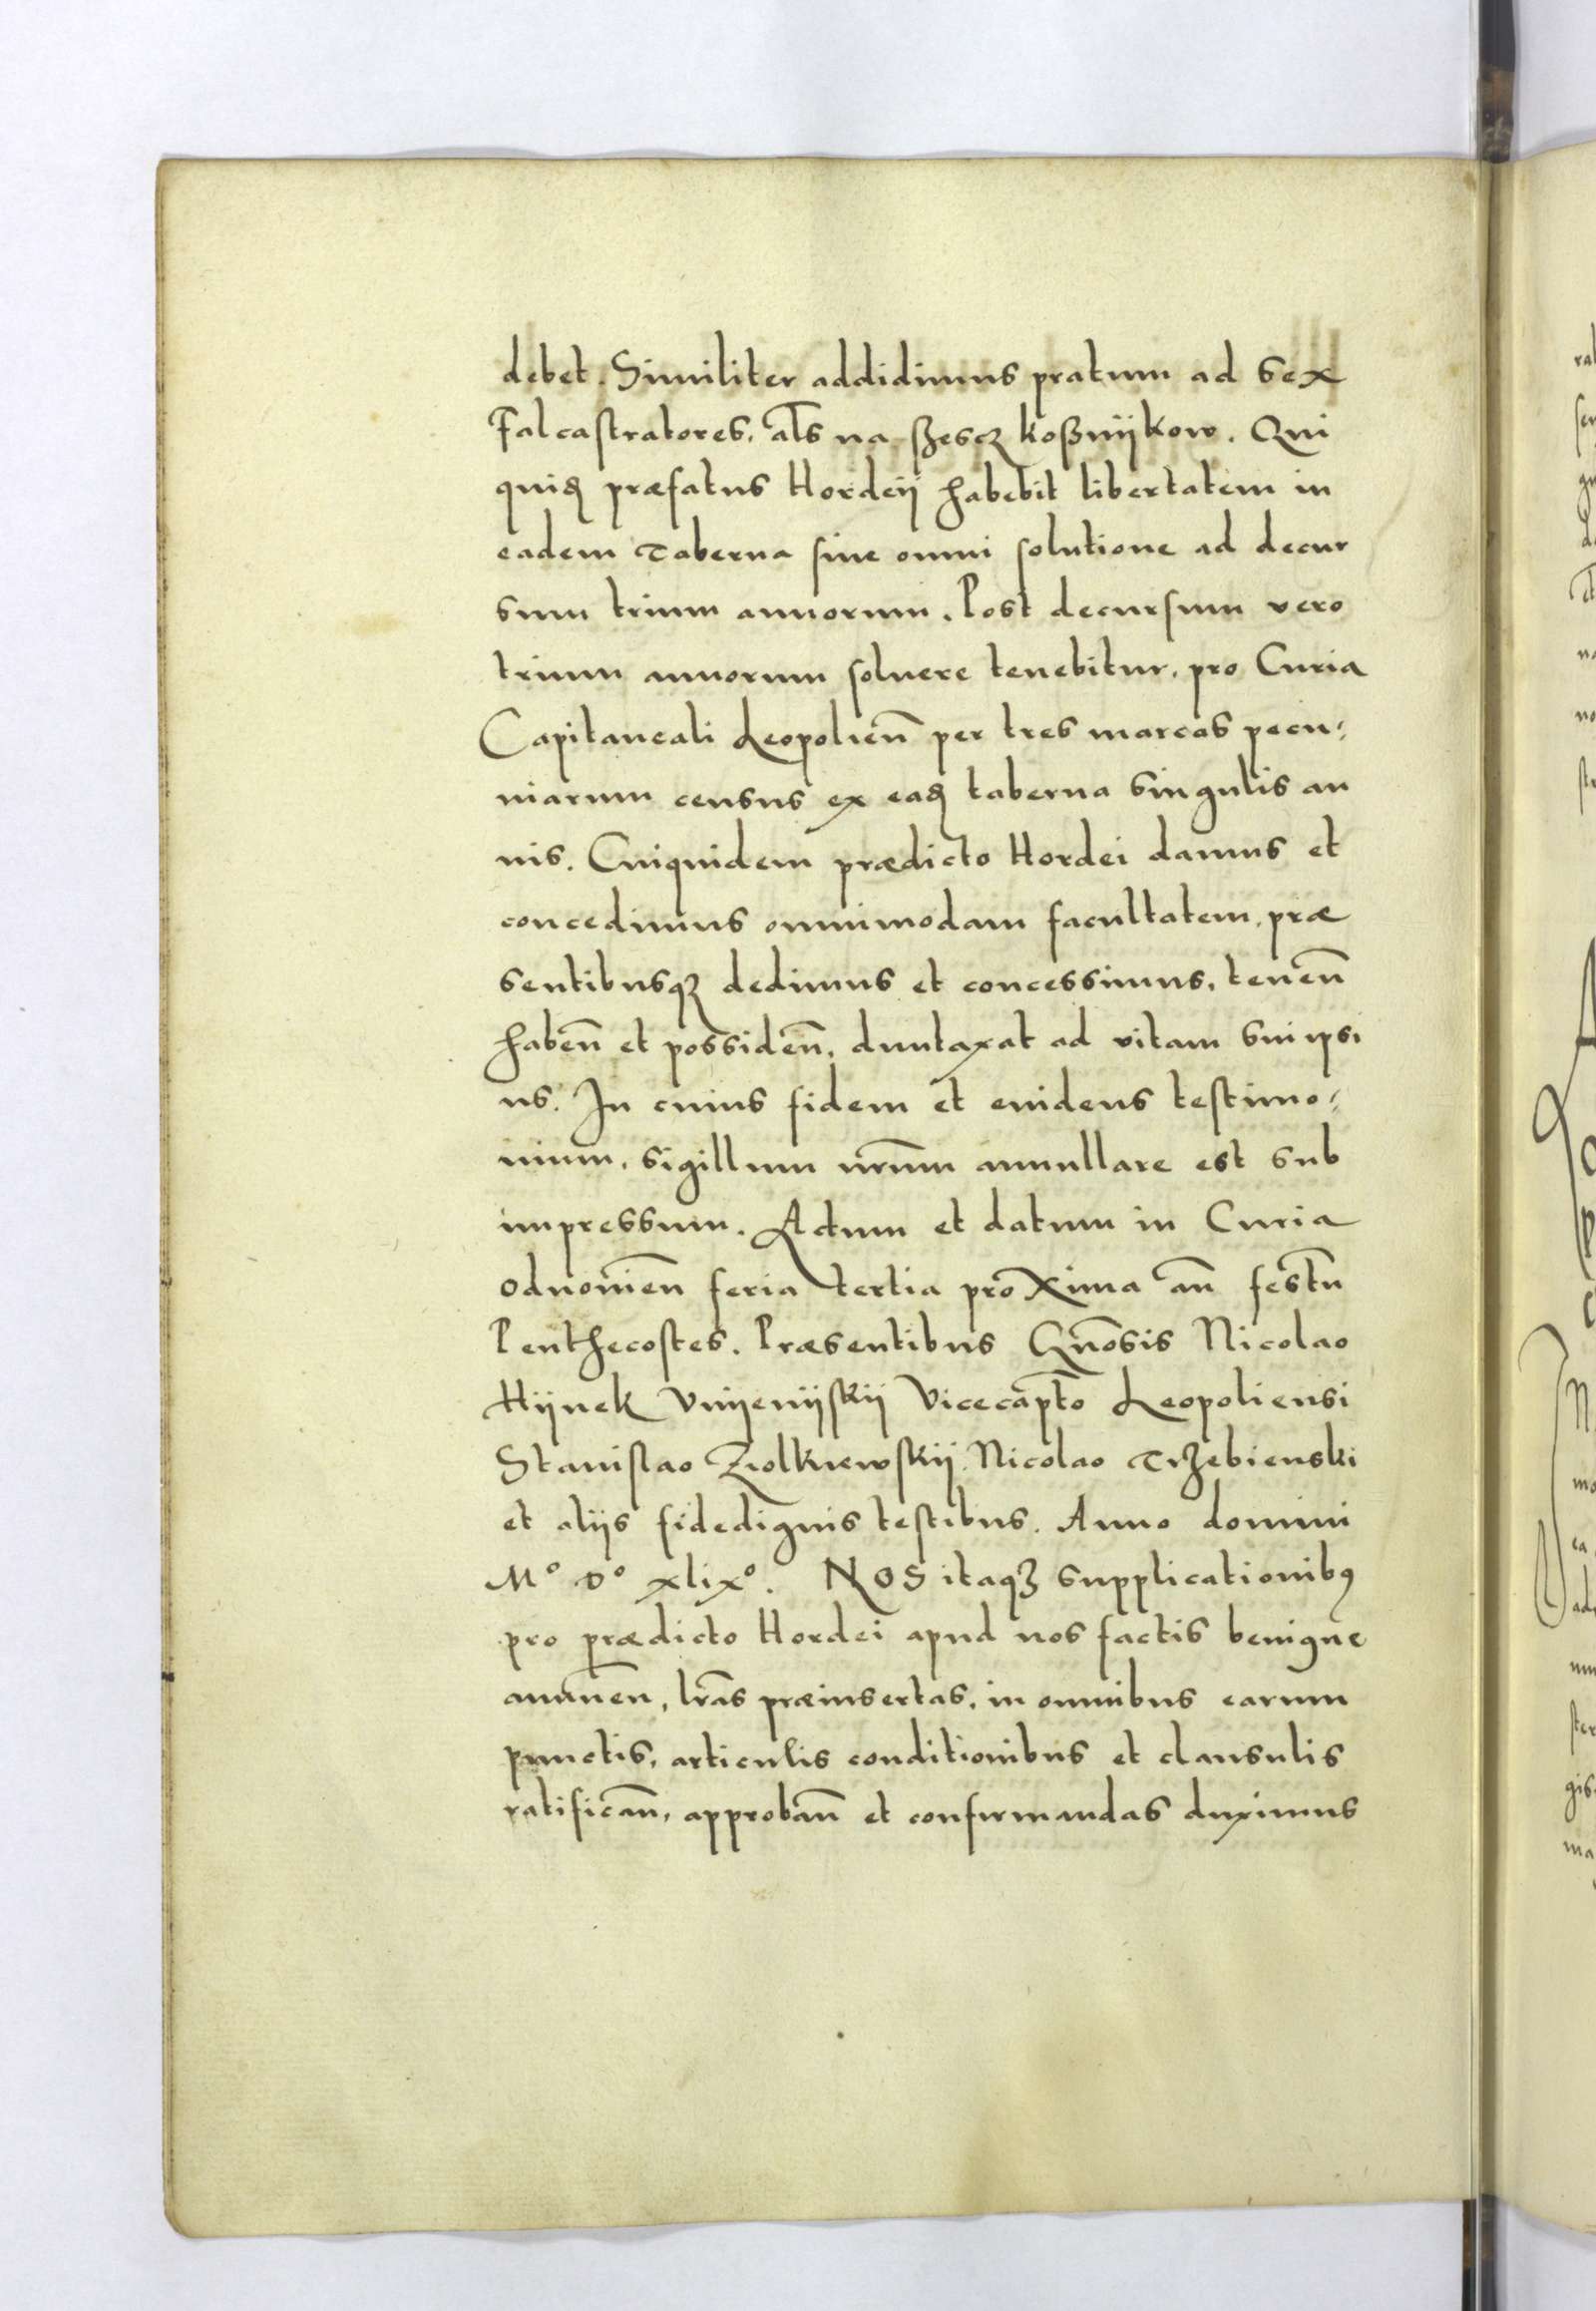 debet. Similiter addidimus pratum ad sex
Falcastratores, al̅s na szescz koßnijkow. Qui
quidꝫ præfatus Hordeij habebit libertatem in
eadem Taberna sine omni solutione ad decur
sum trium annorum. Post decursum vero
trium annorum soluere tenebitur, pro Curia
Capitaneali Leopolien̅ per tres marcas pecu⸗
niarum census ex eadꝫ taberna singulis an
nis. Cuiquidem prædicto Hordei damus et
concedimus omnimodam facultatem, præ
sentibusqꝫ dedimus et concessimus, tenen̅
haben̅ et possiden̅, duntaxat ad vitam sui ipsi
us. In cuius fidem et euidens testimo⸗
nium, sigillum nr̅um annullare est sub
impressum. Actum et datum in Curia
Odnouien̅ feria tertia proxima an̅ festu̅
Penthecostes. Præsentibus Gn̅osis Nicolao
Hijnek Vnijenijskij Vicecap̅to Leopoliensi
Stanislao Ziolknewskij Nicolao Trzebienski
et alijs fidedignis testibus. Anno domini
Mº Dº xlixº. NOS itaqꝫ supplicationibꝰ
pro prædicto Hordei apud nos factis benigne
annuen̅, lr̅as præinsertas, in omnibus earum
punctis, articulis conditionibus et clausulis
ratifican̅, approban̅ et confirmandas duximus